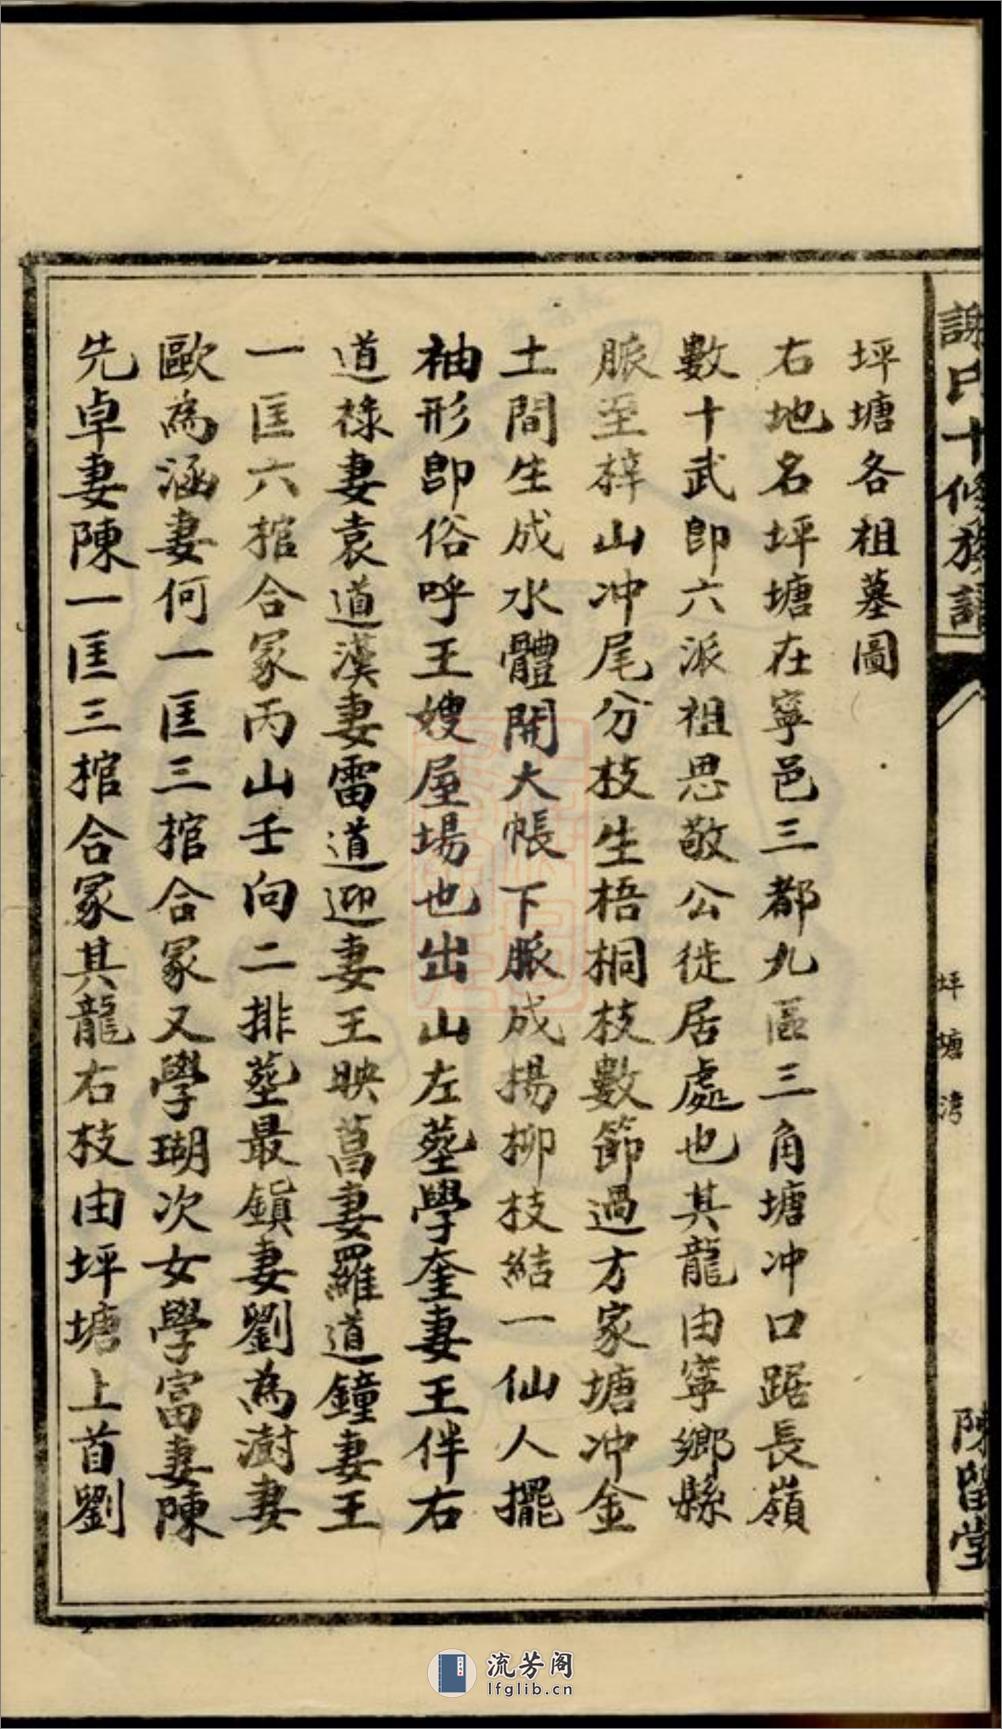 謝氏十修族譜
坪塘湾
陳留堂
坪塘各祖墓圖
右地名坪塘在寧邑三都九區三角塘冲口踞長嶺
數十武即六派祖思敬公徙居處也其龍由寧鄉縣
脈至梓山冲尾分枝生梧桐枝數節過方家塘冲金
土間生成水體開大帳下脈成揚柳枝結一仙人擺
袖形即俗呼王嫂屋場也出山左塟學奎妻王伴右
道祿妻袁道漢妻雷道迎妻王映菖妻羅道鐘妻王
一匡六棺合冢丙山壬向二排塟最鎮妻劉為澍妻
歐為涵妻何一匡三棺合冢又學瑚次女學富妻陳
先卓妻陳一匡三棺合冢其龍右枝由坪塘上首劉
流芳阁
lfglib.cn